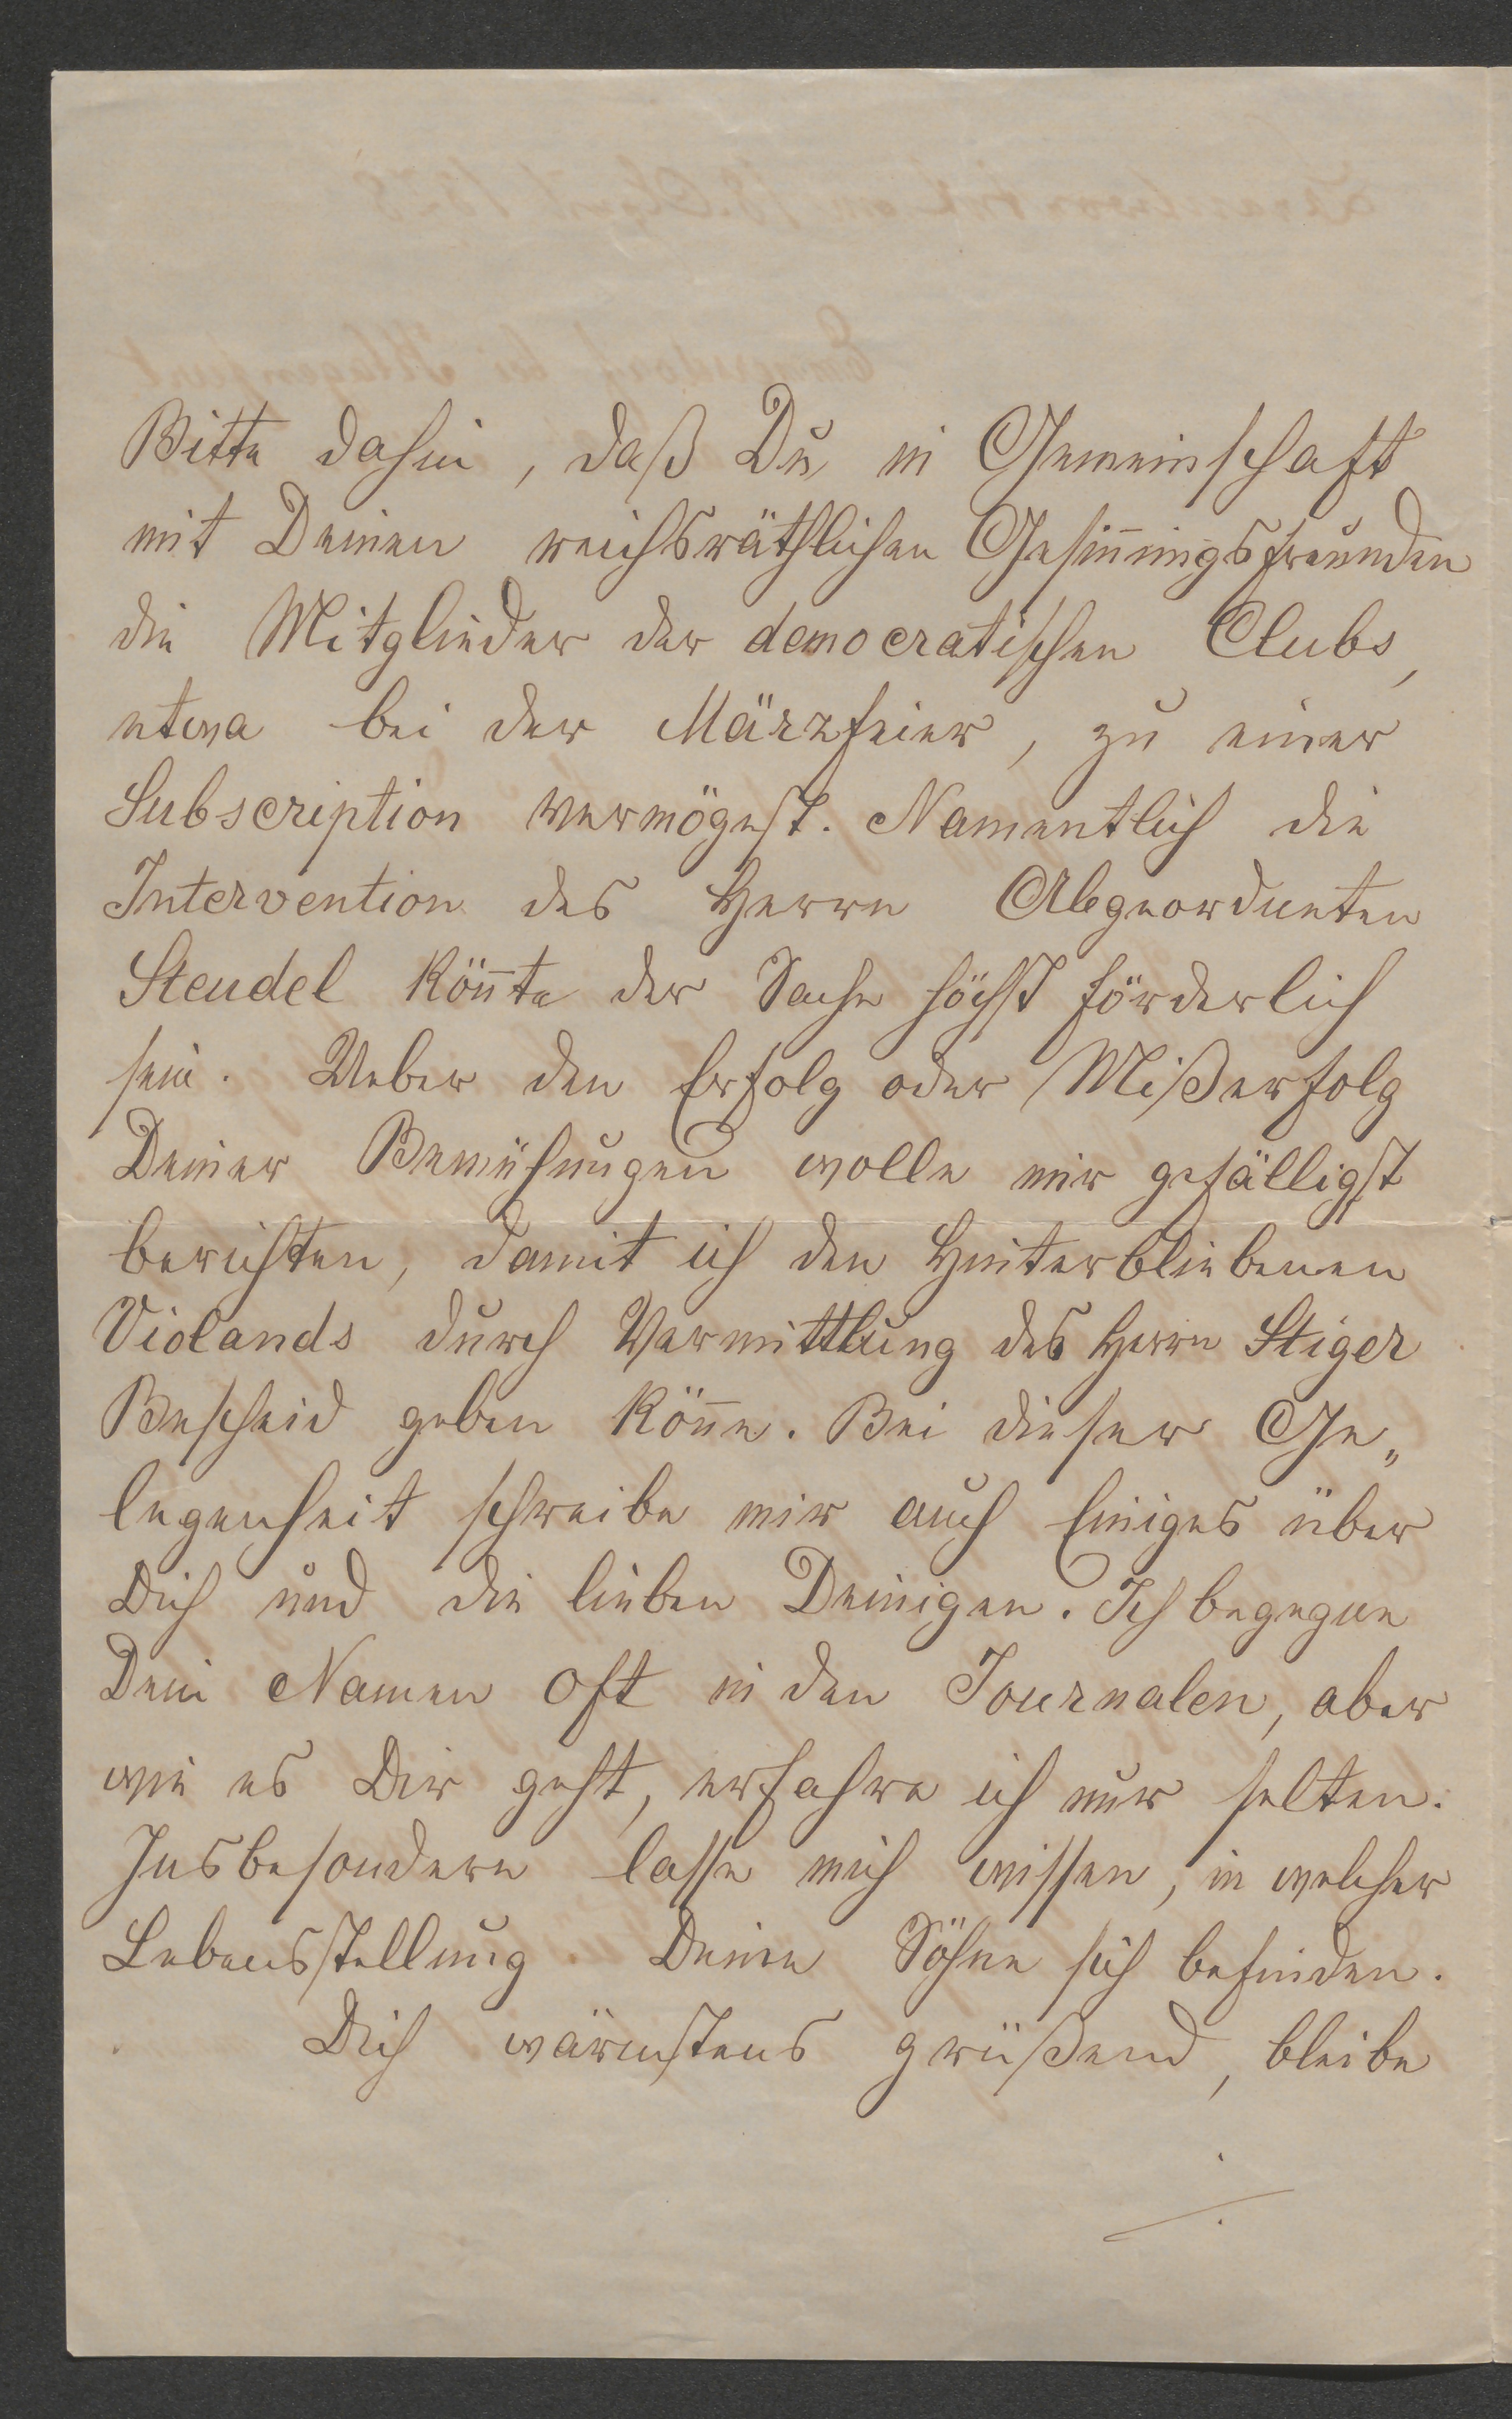 Bitte dahin, daß Du in Gemeinschaft
mit Deinen reichsräthlichen Gesin̄ungsfreunden
die Mitglieder der democratischen Clubs,
etwa bei der Märzfeier, zu einer
Subscription vermögest. Namentlich die
Intervention des Herrn Abgeordneten
Steudel kön̄te der Sache höchst förderlich
sein. Ueber den Erfolg oder Mißerfolg
Deiner Bemühungen wolle mir gefälligst
berichten, damit ich den Hinterbliebenen
Violands durch Vermittlung des Herrn Stiger
Bescheid geben kön̄e. Bei dieser Ge„
legenheit schreibe mir auch Einiges über
Dich und die lieben Deinigen. Ich begegne
Dein Namen oft in den Journalen, aber
wie es Dir geht, erfahre ich nur selten.
Insbesondere lasse mich wissen, in welcher
Lebensstellung Deine Söhne sich befinden.
Dich wärmstens grüßend, bleibe